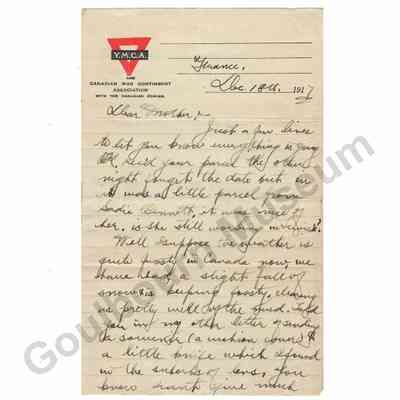 Y.M.C.A.
AND
CANADIAN WAR CONTINGENT
ASSOCIATION
WITH THE CANADIAN FORCES.
France,
Dec 18th. 1917
Dear Mother,
Just a few lines
to let you know everything is going
OK, recd your parcel the other
night
was a little parcel from
Sadie Bennett, it was nice of
her. is she still working
Well I suppose the weather is
quite frosty in Canada now, we
have had a slight fall of
snow, & is keeping frosty, clearing
us pretty well of the mud. Told
you in my other letter of sending
a souvenir (a cushion cover) &
a little knife which I found
in the suburbs of Lens, you
know dont give much
Goulbourn Museum